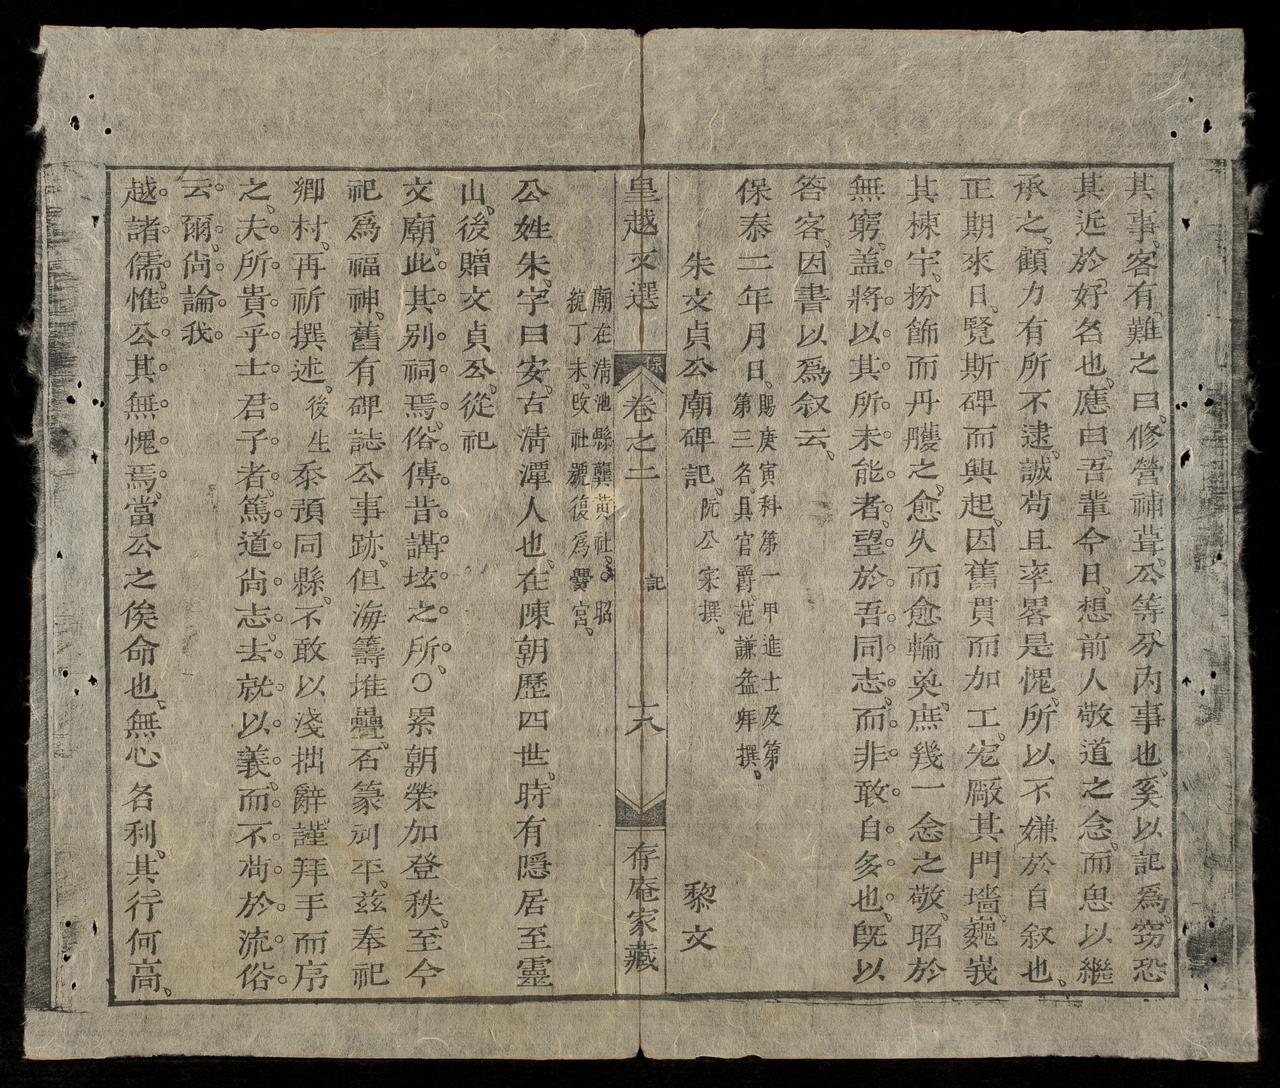 其事客有難之曰修營補葺公等分内事也奚以記爲窃恐
其近於好名也應曰吾輩今日想前人敬道之念而思以繼
承之顧力有所不逮誠苟且率畧是愧所以不嫌於自叙也
正期來日覧斯碑而興起因舊貫而加工宏厰其門墻巍峩
其棟宇扮餙而丹雘之愈久而愈輪奐庶幾一念之敬昭於
無窮盖將以其所未能者望於吾同志而非敢自多也旣以
答客因書以爲叙云
保泰二年月日賜庚寅科第一甲進士及第
第三名具官爵范謙益拜撰
朱文貞公廟碑記阮公寀撰 黎文
廟在清池縣龔黄社昭
統丁未改社號復爲黌宫
皇越文選 記 卷之二 記 十八 存庵家藏
公姓朱字曰安古清潭人也在陳朝歷四世時有隱居至靈
山後贈文貞公從祀
文廟此其别祠焉俗傳昔講坛之所〇累朝榮加登秩至今
祀爲福神舊有碑誌公事跡但海籌堆疊石篆刓平兹奉祀
鄉村再祈撰述後生忝預同縣不敢以淺拙辭謹拜手而序
之夫所貴乎士君子者篤道尚志去就以義而不苟於流俗
云爾尚論我
越諸儒惟公其無愧焉當公之俟命也無心名利其行何高